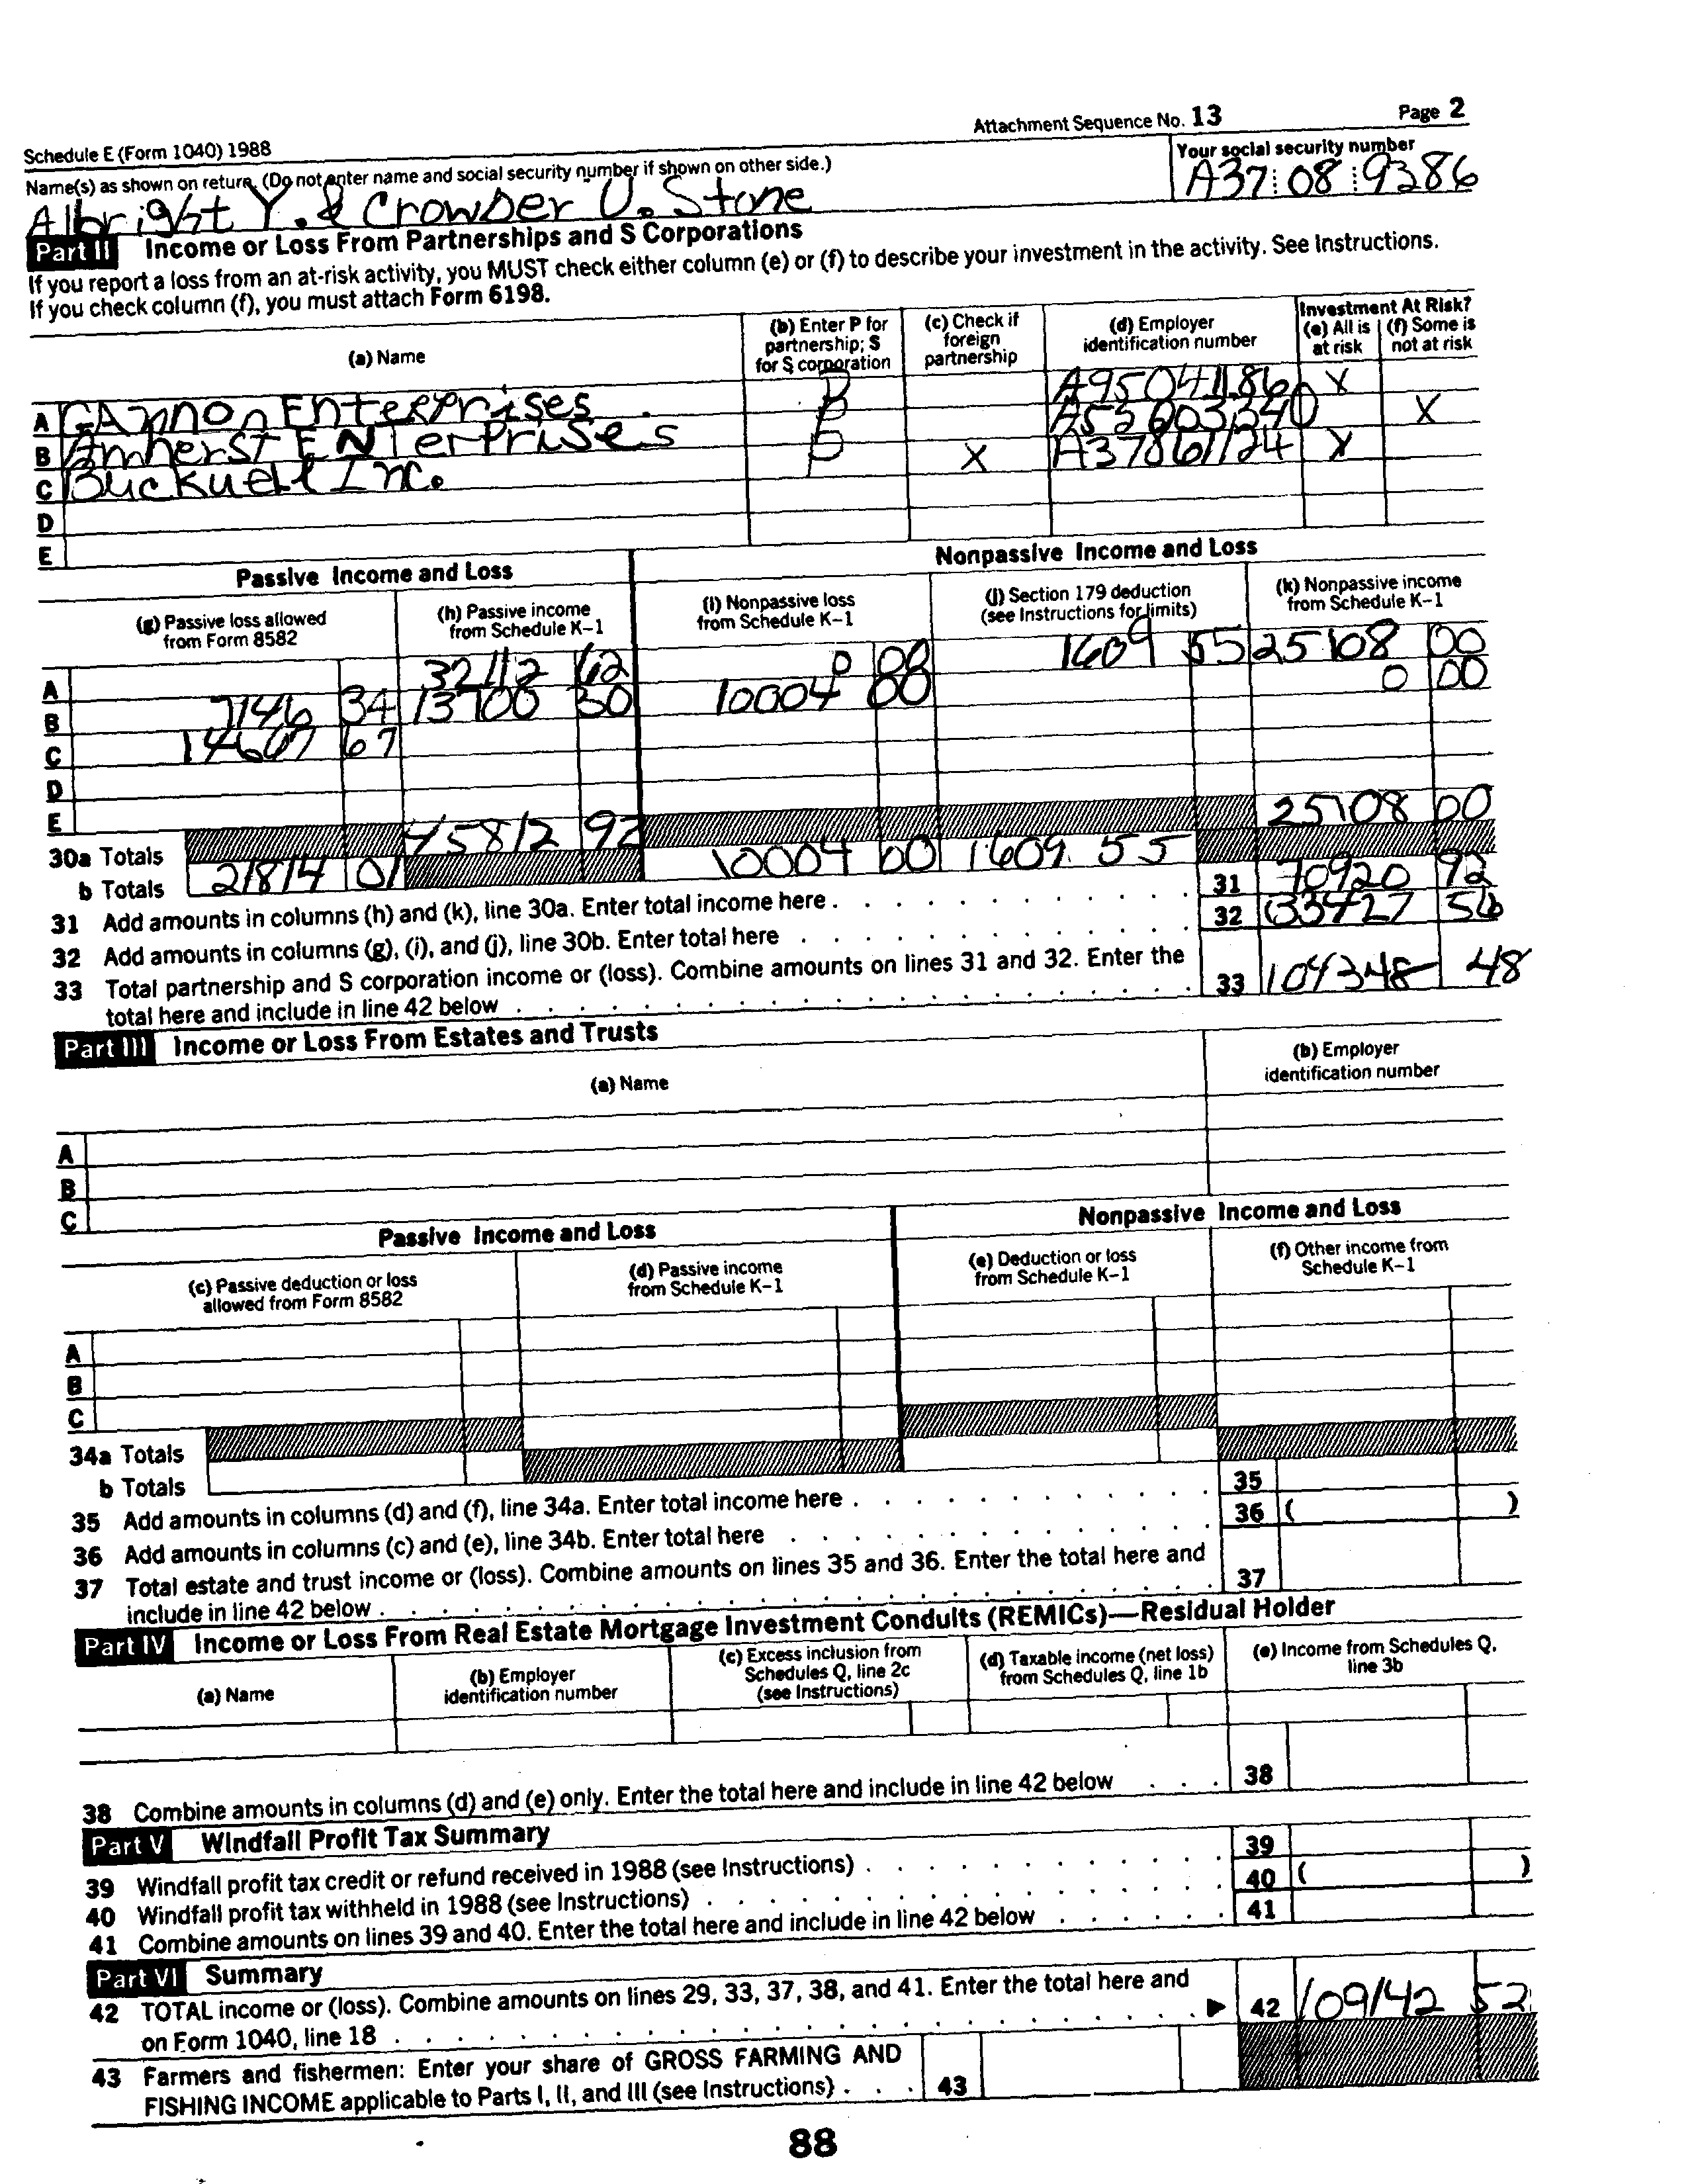 Attachment Sequence No. 13 Page 2
Schedule E (Form 1040) 1988
Name(s) as shown on return. (Do not enter name and social security number if shown on other side.) Your social security number
Albright Y. & Crowder U. Stone A37 08 9386
Part II Income or Loss From Partnerships and S Corporations
If you report a loss from an at-risk activity, you MUST check either column (e) or (f) to describe your investment in the activity. See Instructions.
If you check column (f), you must attach Form 6198.
(a) Name (b) Enter P for partnership; S for S corporation (c) Check if foreign partnership (d) Employer identification number Investment At Risk? (e) All is at risk (f) Some is not at risk
A Cannon Enterprises P A95041186 X
B Amherst ENTerprises P A52603340 X
C Bucknell Inc. P X A37861124 X
D
E
Passive Income and Loss Nonpassive Income and Loss
(g) Passive loss allowed from Form 8582 (h) Passive income from Schedule K-1 (i) Nonpassive loss from Schedule K-1 (j) Section 179 deduction (see Instructions for limits) (k) Nonpassive income from Schedule K-1
A 32112 62 0 00 1609 55 25108 00
B 7146 34 13700 30 10004 00 0 00
C 14667 67
D
E
30a Totals 45812 92 25108 00
b Totals 21814 01 10004 00 1609. 55
31 Add amounts in columns (h) and (k), line 30a. Enter total income here 31 70920 92
32 Add amounts in columns (g), (i), and (j), line 30b. Enter total here 32 (33427 56
33 Total partnership and S corporation income or (loss). Combine amounts on lines 31 and 32. Enter the
total here and include in line 42 below 33 104348 48
Part III Income or Loss From Estates and Trusts
(a) Name (b) Employer identification number
A
B
C
Passive Income and Loss Nonpassive Income and Loss
(c) Passive deduction or loss allowed from Form 8582 (d) Passive income from Schedule K-1 (e) Deduction or loss from Schedule K-1 (f) Other income from Schedule K-1
A
B
C
34a Totals
b Totals
35 Add amounts in columns (d) and (f), line 34a. Enter total income here 35
36 Add amounts in columns (c) and (e), line 34b. Enter total here 36 ( )
37 Total estate and trust income or (loss). Combine amounts on lines 35 and 36. Enter the total here and
include in line 42 below 37
Part IV Income or Loss From Real Estate Mortgage Investment Conduits (REMICs)—Residual Holder
(a) Name (b) Employer identification number (c) Excess inclusion from Schedules Q, line 2c (see Instructions) (d) Taxable income (net loss) from Schedules Q, line 1b (e) Income from Schedules Q, line 3b
38 Combine amounts in columns (d) and (e) only. Enter the total here and include in line 42 below 38
Part V Windfall Profit Tax Summary
39 Windfall profit tax credit or refund received in 1988 (see Instructions) 39
40 Windfall profit tax withheld in 1988 (see Instructions) 40 ( )
41 Combine amounts on lines 39 and 40. Enter the total here and include in line 42 below 41
Part VI Summary
42 TOTAL income or (loss). Combine amounts on lines 29, 33, 37, 38, and 41. Enter the total here and
on Form 1040, line 18 42 109142 52
43 Farmers and fishermen: Enter your share of GROSS FARMING AND
FISHING INCOME applicable to Parts I, II, and III (see Instructions) 43
88